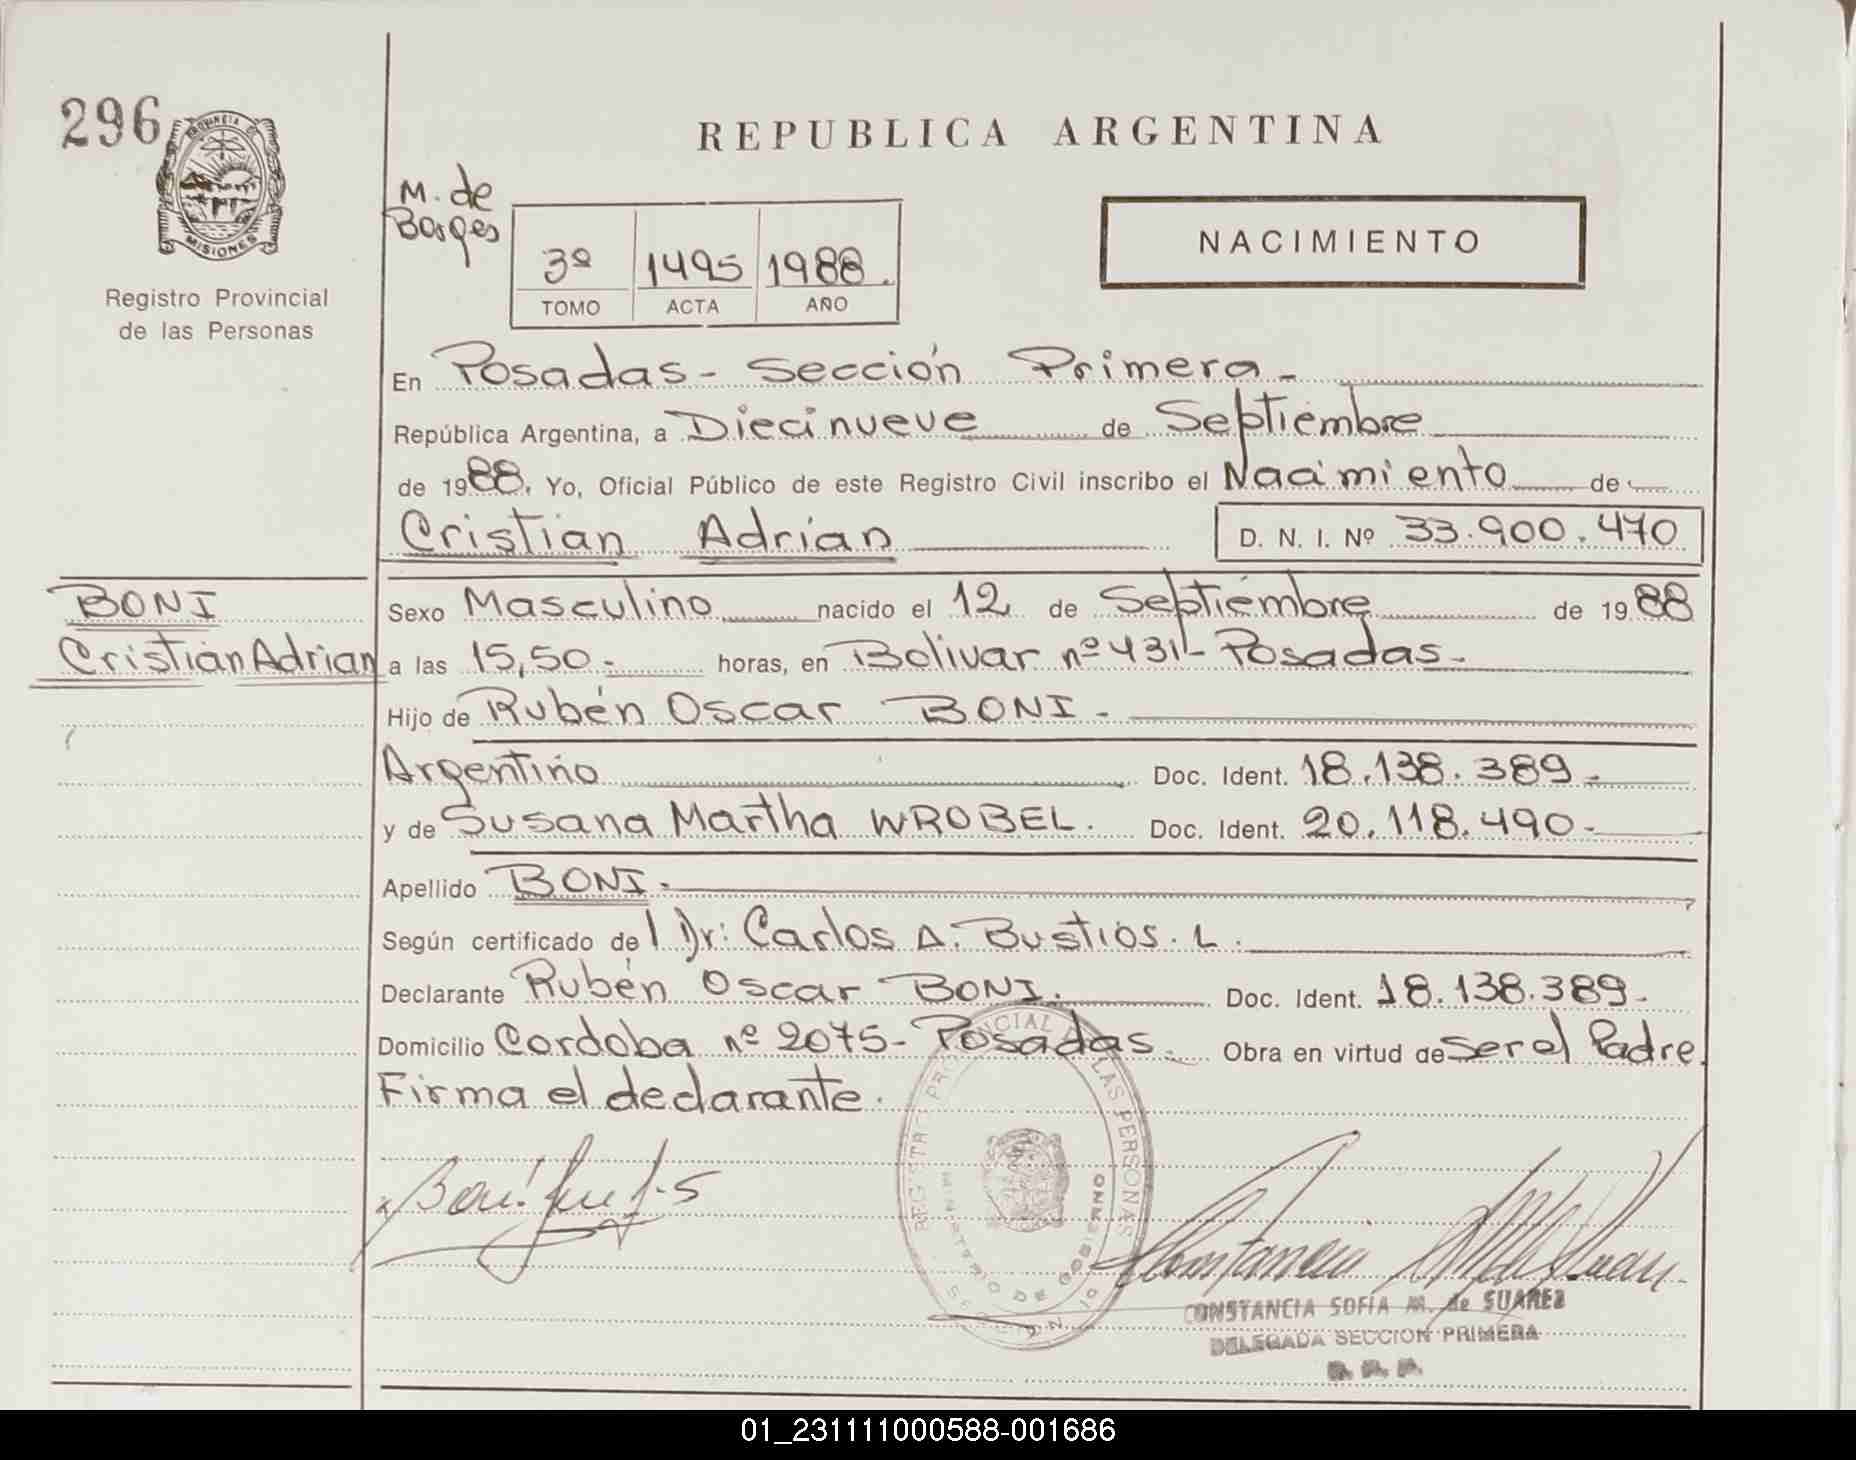 296
PROVINCIA DE
MISIONES
Registro Provincial
de las Personas
REPUBLICA ARGENTINA
M. de
Borges
3º 1495 1988.
TOMO ACTA AÑO
NACIMIENTO
En Posadas - Sección Primera -
República Argentina, a Diecinueve de Septiembre
de 1988. Yo, Oficial Público de este Registro Civil inscribo el Nacimiento de
Cristian Adrian D. N. I. Nº 33.900.470
BONI
Cristian Adrian
Sexo Masculino nacido el 12 de Septiembre de 1988
a las 15,50.- horas, en Bolivar nº 431- Posadas-
Hijo de Rubén Oscar BONI -
Argentino Doc. Ident. 18.138.389.-
y de Susana Martha WROBEL. Doc. Ident. 20.118.490-
Apellido BONI.
Según certificado del Dr: Carlos A. Bustios. L.
Declarante Rubén Oscar BONI. Doc. Ident. 18.138.389-
Domicilio Cordoba nº 2075- Posadas. Obra en virtud de Ser el Padre.
Firma el declarante.
PROVINCIAL DE LAS PERSONAS
MINISTERIO DE GOBIERNO
CONSTANCIA SOFÍA M. de SUAREZ
DELEGADA SECCION PRIMERA
01_231111000588-001686